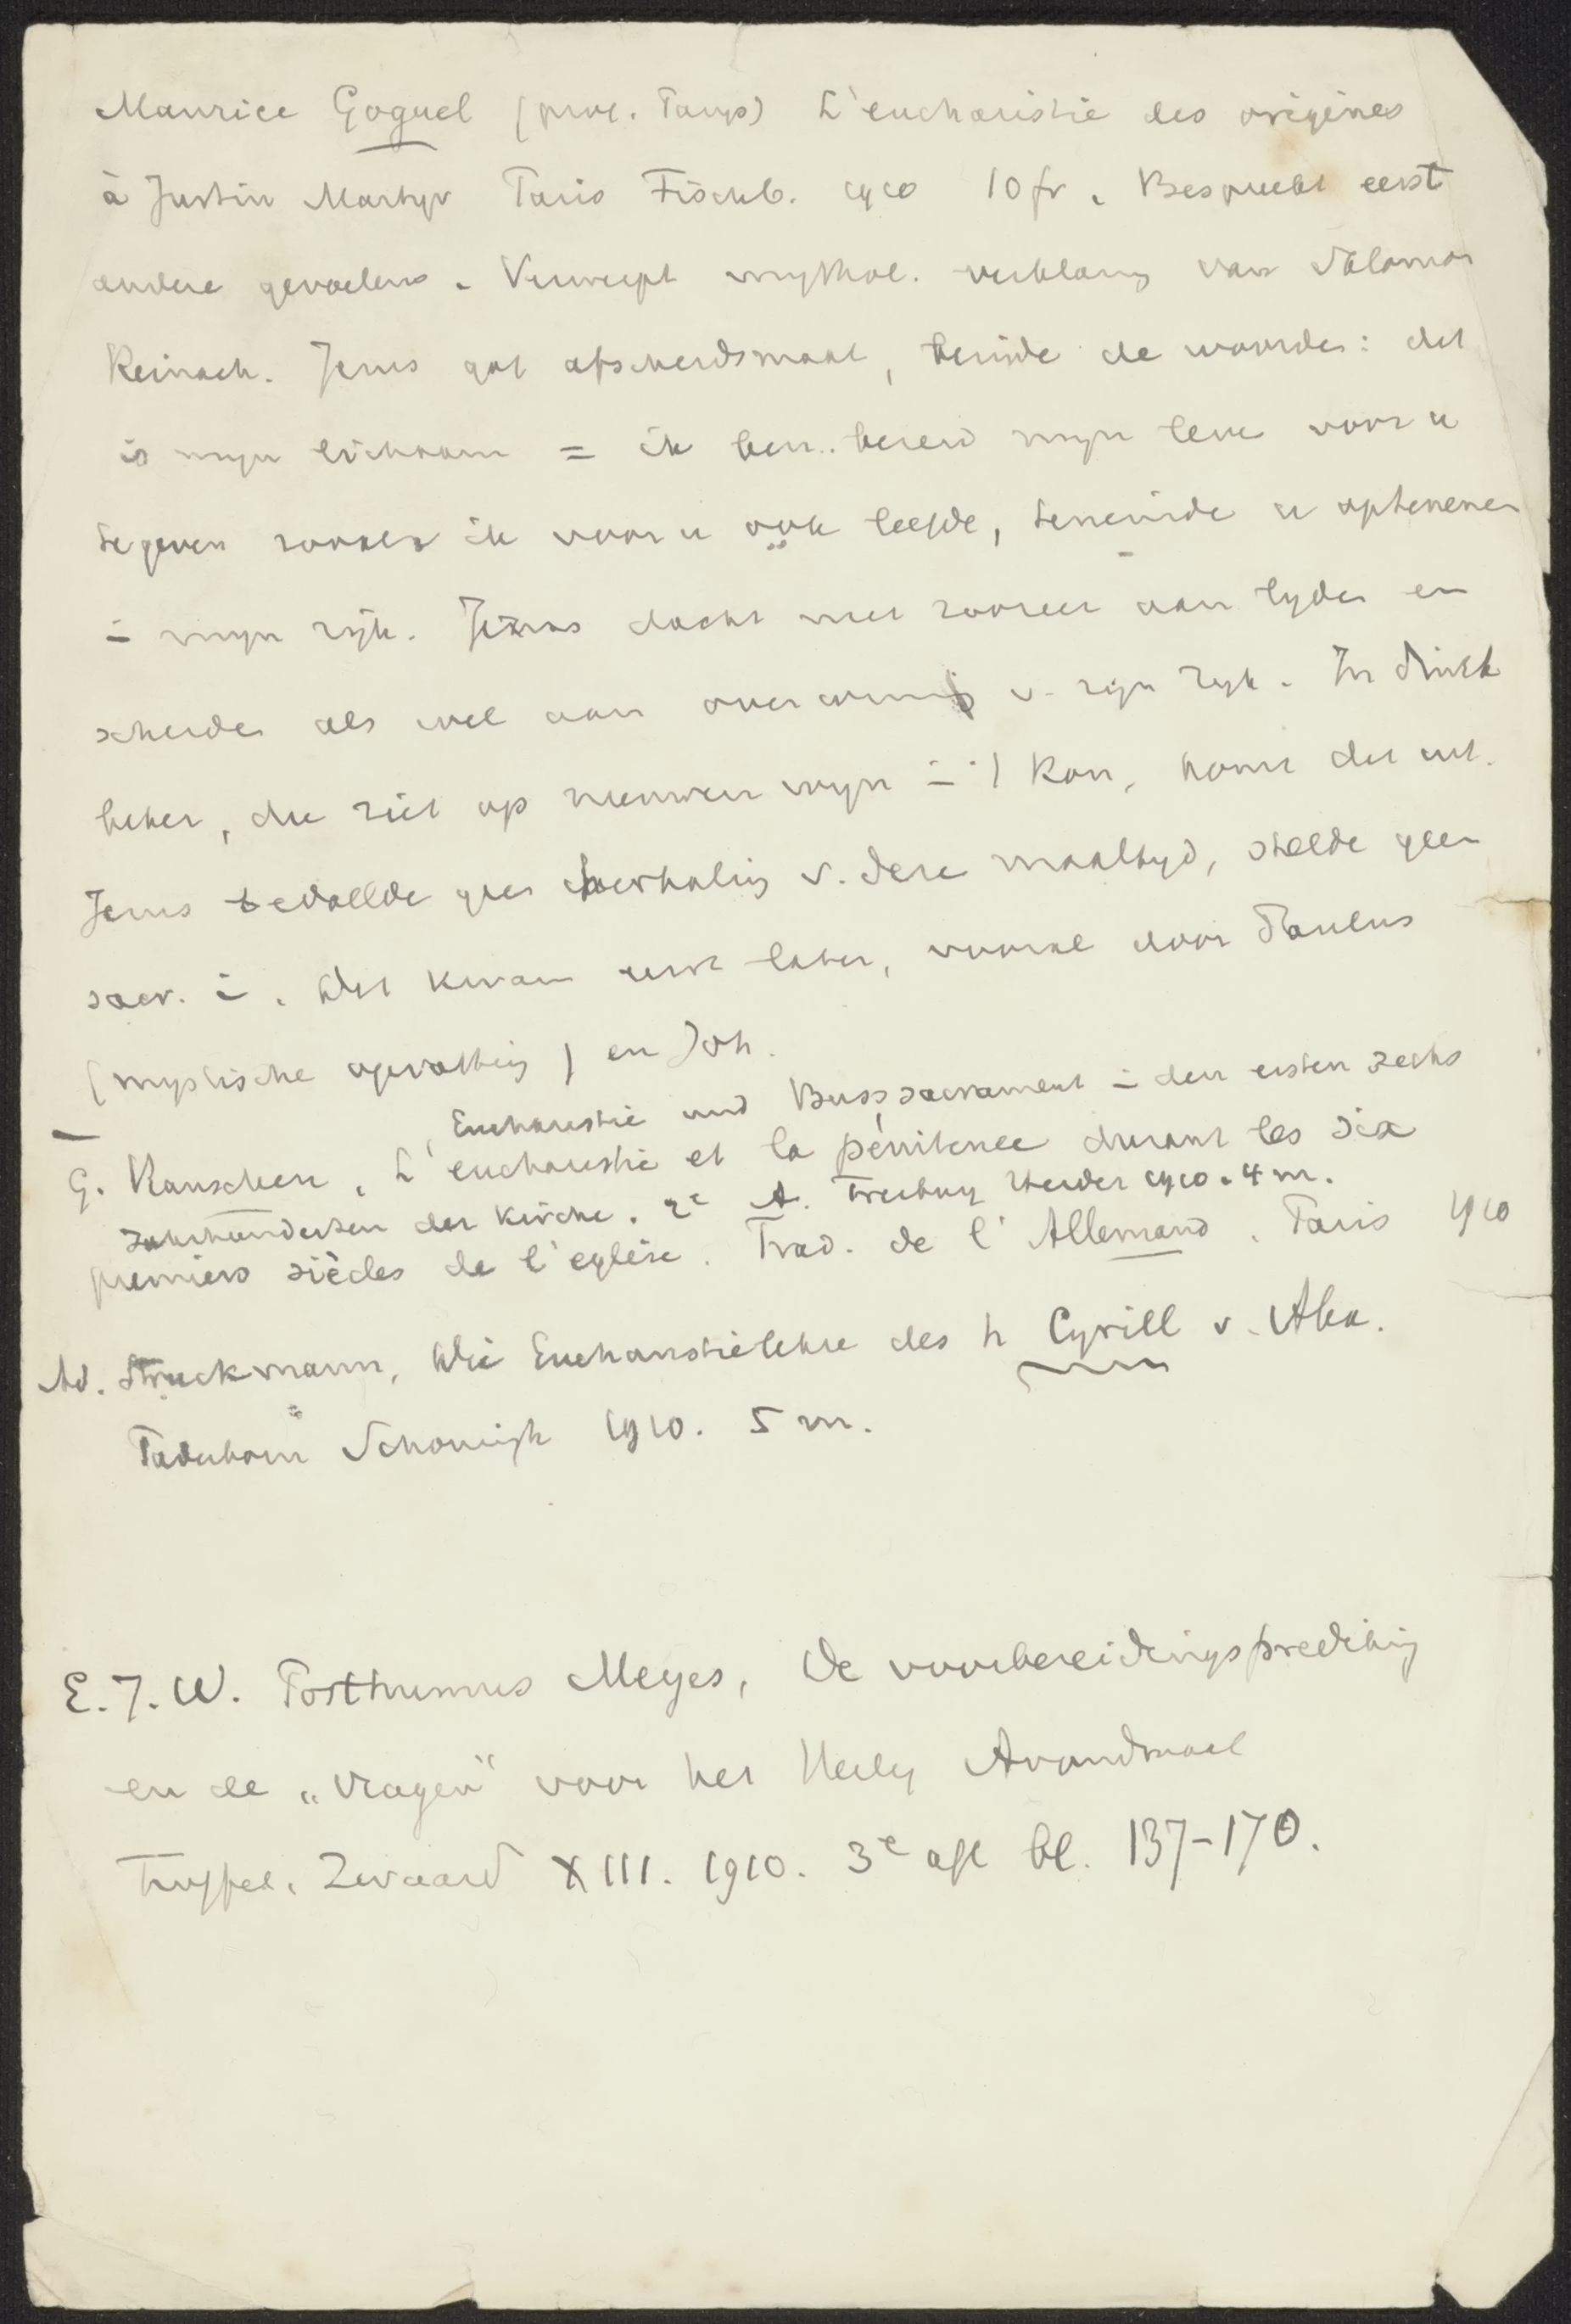 Maurice Goguel (prot. Parijs) L'eucharistie des origines
à Justin Martyr Paris Fischb. 1910 10 fr. Bespreekt eerst
andere gevoelens. Verwerpt mythol. verklaring van Salomon
Reinach. Jezus gaf afscheidsmaal, beinde de woorden: dit
is mijn lichaam = ik ben bereid mijn leven voor u
te geven zooals ik voor u ook leefde, teneinde u optenemen
i mijn rijk. Jezus dacht niet zoozeer aan lijden en
scheiden als wel aan overwinnig v. zijn rijk. In drink
beker, die ziet op nieuwen wijn i 't Kon, komt dit uit.
Jezus bedoelde geen herhaling v. deze maaltijd, stelde geen
sacr. i. Dit kwam eerst later, vooral door Paulus
(mystische opvatting) en Joh.
Eucharistie und Busssacrament i den ersten sechs
G. Rauschen, L'eucharistie et la pénitence durant les six
Jahrhunderten der Kirche. 2e A. Freiburg Herder 1910. 4 m.
premiers siècles de l'eglise. Trad. de l'Allemand. Paris 1910
Ad. Struckmann, Die Eucharistielehre des h Cyrill v. Alex.
Paderborn Schöningh 1910. 5 m.
E. J. W. Posthumus Meyes, De voorbereidingsprediking
en de „vragen" voor het Heilig Avondmaal
Truffel. Zwaard XIII. 1910. 3e afl bl. 137-170.